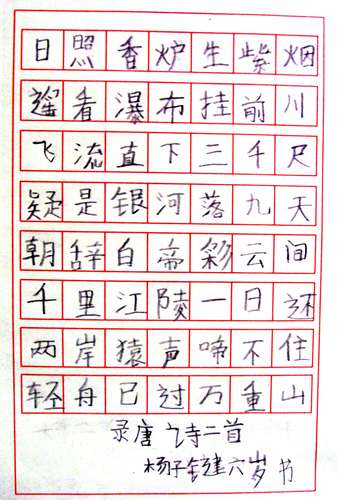 日照香炉生紫烟
遥看瀑布挂前川
飞流直下三千尺
疑是银河落九天
朝辞白帝彩云间
千里江陵一日还
两岸猿声啼不住
轻舟已过万重山
录唐飞诗二首
杨子健六岁书